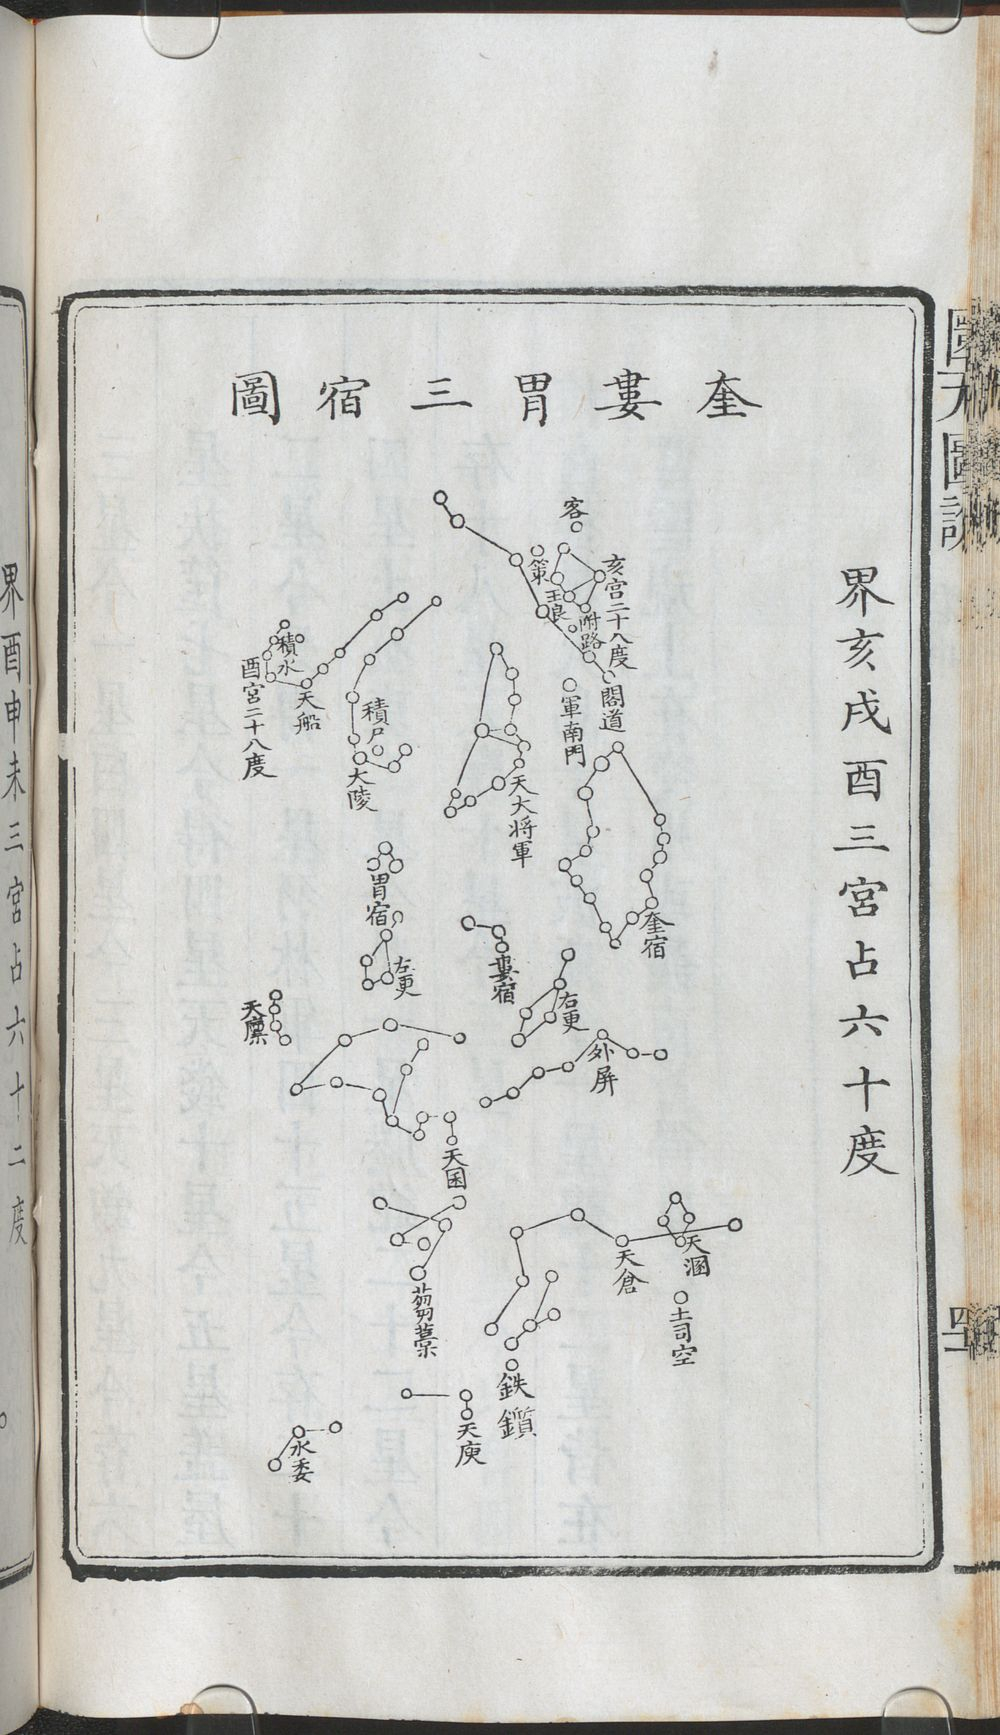 奎婁胃三宿圖
界亥戌酉三宮占六十度
客
策
王良
亥宮二十八度
附路
閣道
軍南門
積水
酉宮二十八度
天船
積尸
大陵
天大将軍
奎宿
胃宿
左更
婁宿
右更
外屏
天廩
天囷
芻藁
天倉
天溷
土司空
鈇鑕
天庾
水委
圜天圖說
界酉申未三宮占六十二度